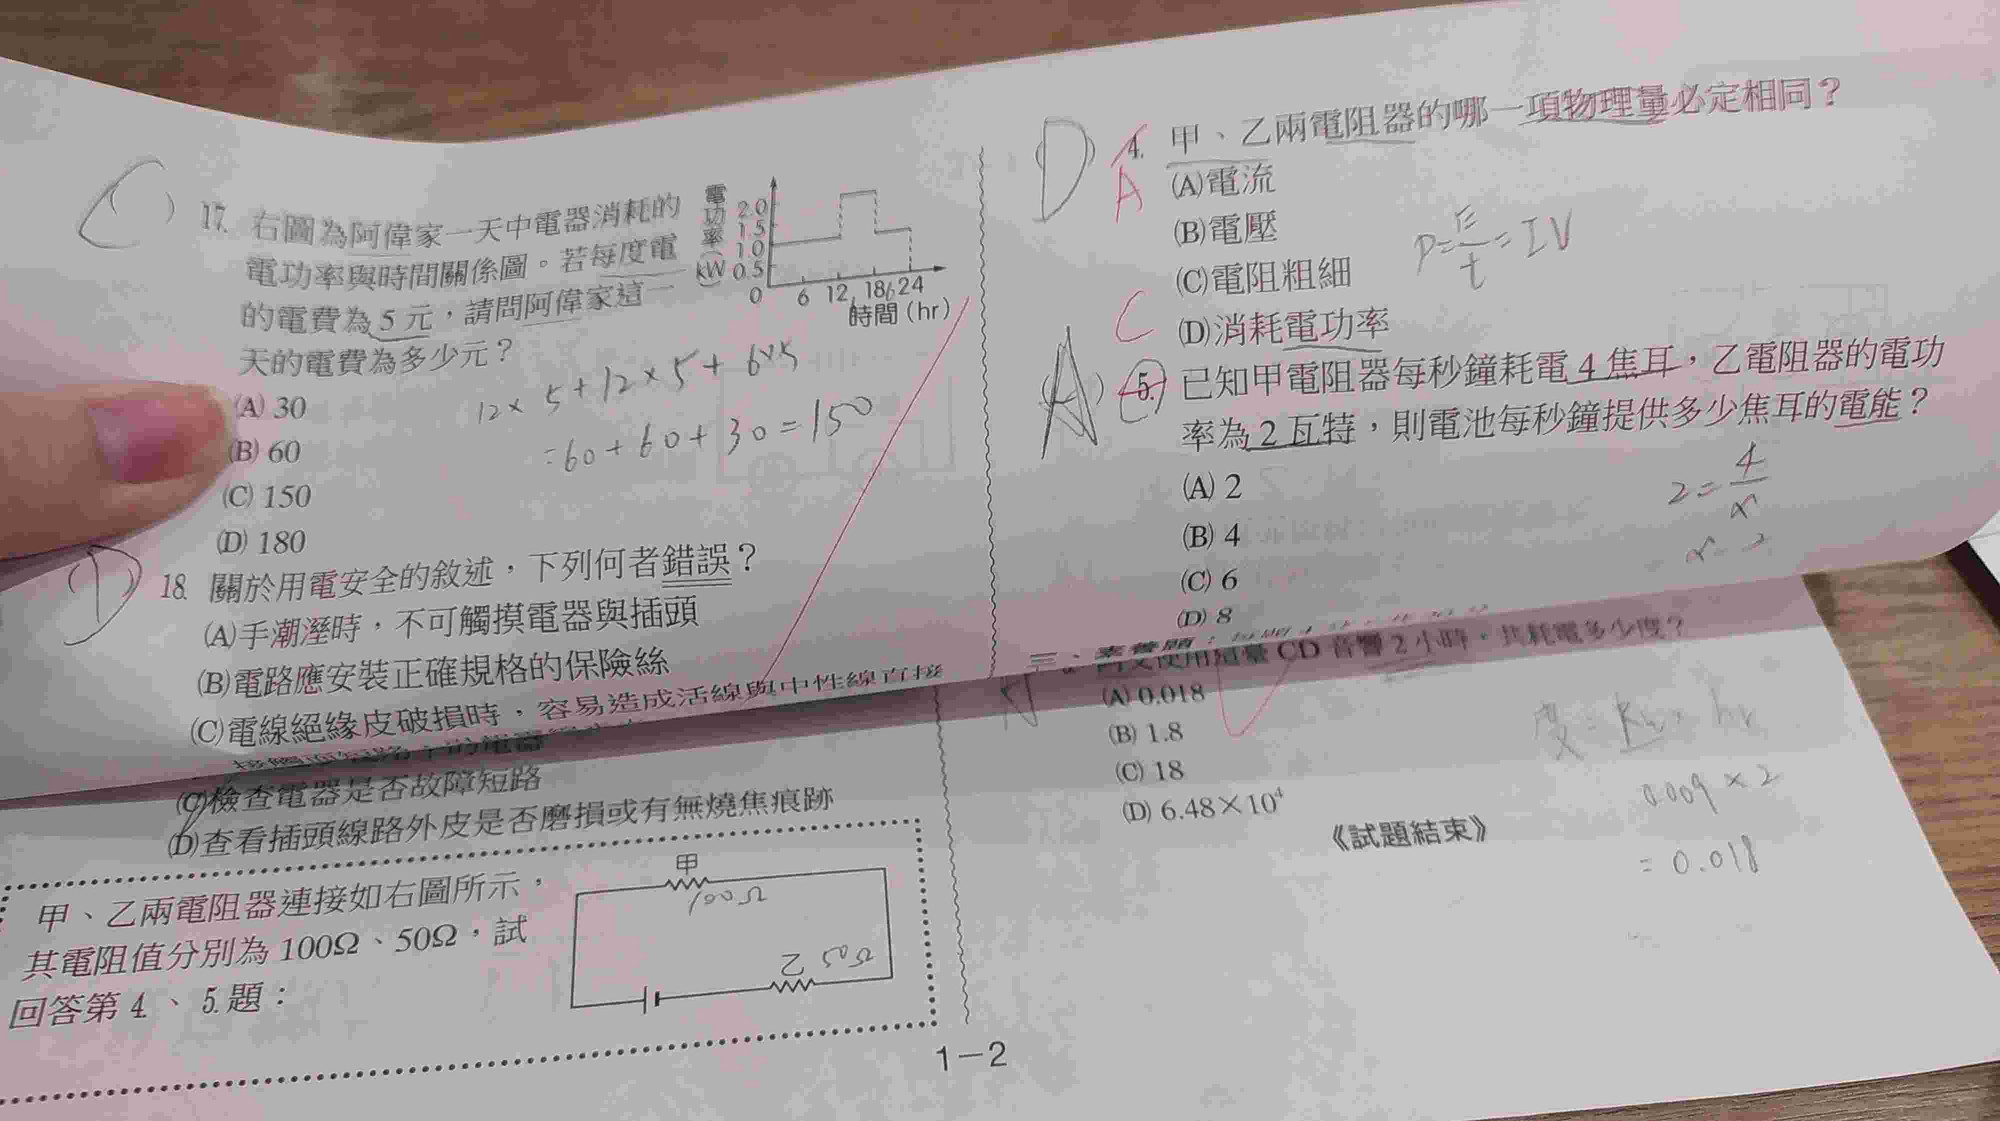 (C) 17. 右圖為阿偉家一天中電器消耗的
電功率與時間關係圖。若每度電
的電費為 5 元，請問阿偉家這一
天的電費為多少元？
(A) 30
(B) 60
(C) 150
(D) 180
電功率(kW)
2.0
1.5
1.0
0.5
0 6 12 18 24
時間(hr)
12×5+12×5+6×5
=60+60+30=150
(D) 18. 關於用電安全的敘述，下列何者錯誤？
(A)手潮溼時，不可觸摸電器與插頭
(B)電路應安裝正確規格的保險絲
(C)電線絕緣皮破損時，容易造成活線與中性線直接
(C)檢查電器是否故障短路
(D)查看插頭線路外皮是否磨損或有無燒焦痕跡
甲、乙兩電阻器連接如右圖所示，
其電阻值分別為 100Ω、50Ω，試
回答第 4.、5.題：
甲
100Ω
乙 50Ω
(D) 4. 甲、乙兩電阻器的哪一項物理量必定相同？
A
(A)電流
(B)電壓
(C)電阻粗細
(D)消耗電功率
P=E/t=IV
C
(A) 5. 已知甲電阻器每秒鐘耗電 4 焦耳，乙電阻器的電功
率為 2 瓦特，則電池每秒鐘提供多少焦耳的電能？
(A) 2
(B) 4
(C) 6
(D) 8
2=4/x
x=2
三、素養題：
使用這臺 CD 音響 2 小時，共耗電多少度？
(A) 0.018
(B) 1.8
(C) 18
(D) 6.48×10⁴
度=kw×hr
0.009×2
=0.018
《試題結束》
1－2